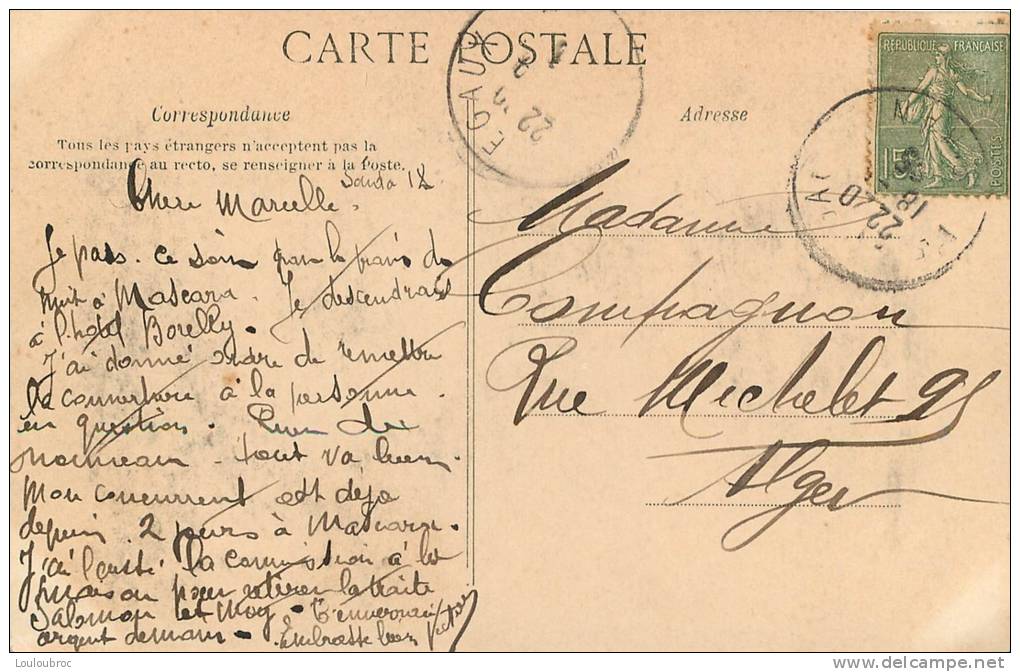 CARTE POSTALE
Correspondance
Tous les pays étrangers n'acceptent pas la
correspondance au recto, se renseigner à la Poste.
Adresse
RÉPUBLIQUE FRANÇAISE
15
POSTES
EGAUX
22
18
Saïda 12
Chère Marcelle.
Je pars ce soir par le train de
nuit à Mascara. Je descendrais
à l'hotel Borelly.
J'ai donné ordre de remettre
la commission à la personne
en question. Rien de
nouveau. tout va bien.
Mon concurrent est deja
depuis 2 jours à Mascara.
J'ai laissé la commission à la
maison pour retirer la traite
Salomon et Moy. T'enverrai
argent demain. Embrasse bien
Madame
Compagnon
Rue Michelet 95
Alger
© Louloubroc
www.delcampe.net